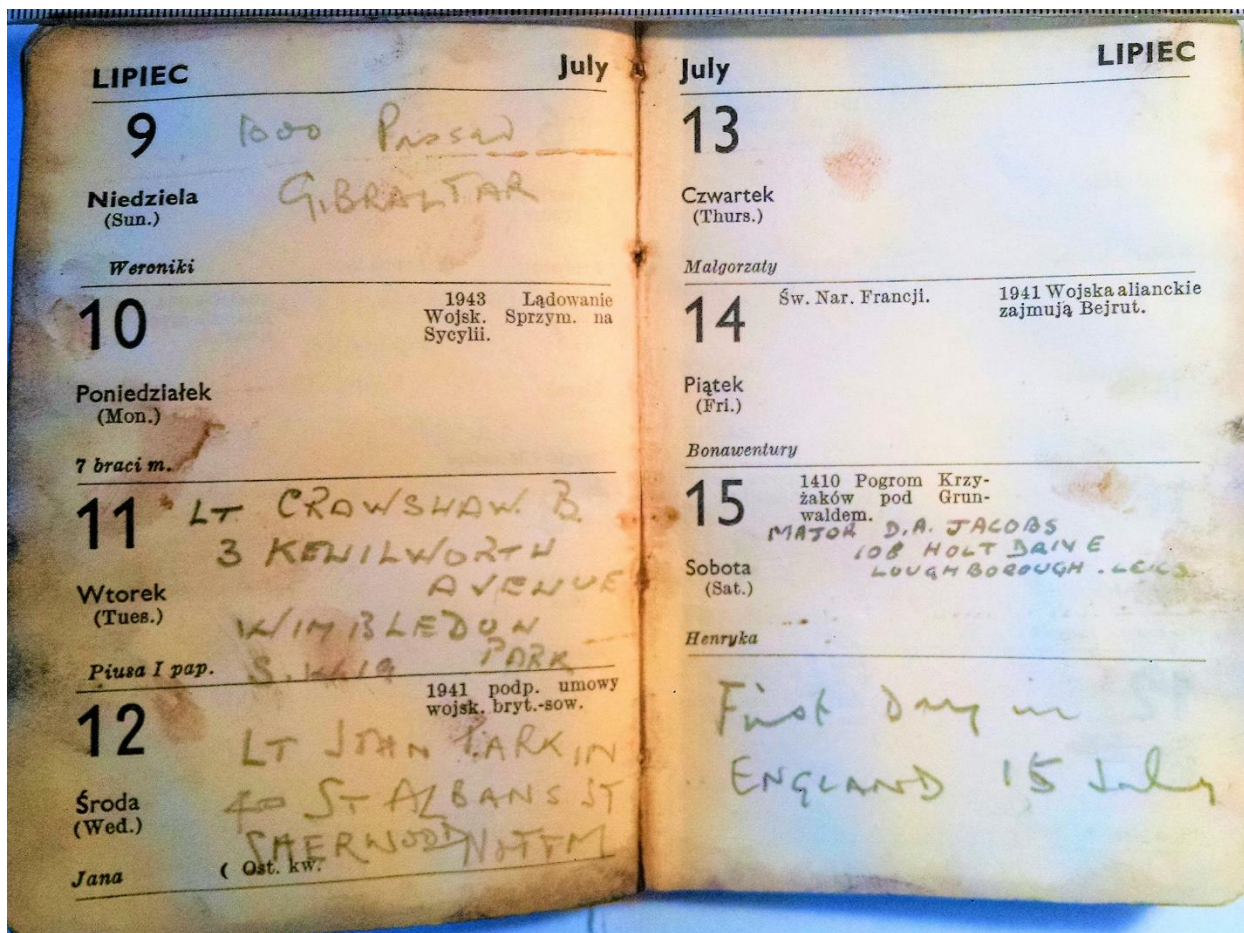 LIPIEC July
9 1000 Passed
GIBRALTAR
Niedziela
(Sun.)
Weroniki
10
1943 Lądowanie
Wojsk. Sprzym. na
Sycylii.
Poniedziałek
(Mon.)
7 braci m.
11 LT CRAWSHAW. B.
3 KENILWORTH
AVENUE
Wtorek
(Tues.)
WIMBLEDON
PARK
Piusa I pap. S.W.19
12
1941 podp. umowy
wojsk. bryt.-sow.
LT JOHN PARKIN
40 ST ALBANS ST
Środa
(Wed.)
SHERWOOD NOTTM
Jana
( Ost. kw.
July LIPIEC
13
Czwartek
(Thurs.)
Małgorzaty
14
Św. Nar. Francji.
1941 Wojska alianckie
zajmują Bejrut.
Piątek
(Fri.)
Bonawentury
15
1410 Pogrom Krzy-
żaków pod Grun-
waldem.
MAJOR D.A. JACOBS
108 HOLT DRIVE
LOUGHBOROUGH. LEICS
Sobota
(Sat.)
Henryka
First Day in
ENGLAND 15 July